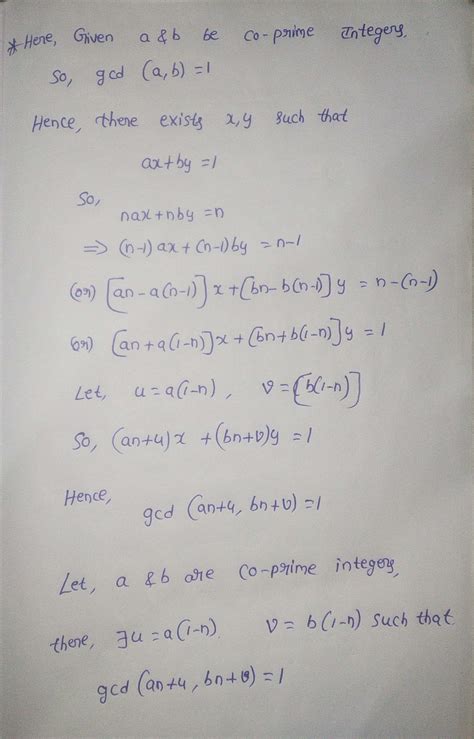 * Here, Given a & b be co-prime Integers.
So, gcd (a,b) = 1
Hence, there exists x,y such that
ax+by = 1
So,
nax+nby = n
⇒ (n-1)ax + (n-1)by = n-1
(or) [an-a(n-1)]x + [bn-b(n-1)]y = n-(n-1)
(or) [an+a(1-n)]x + [bn+b(1-n)]y = 1
Let, u = a(1-n), v = [b(1-n)]
So, (an+u)x + (bn+v)y = 1
Hence,
gcd (an+u, bn+v) = 1
Let, a & b are co-prime integers,
there, ∃ u = a(1-n) v = b(1-n) such that
gcd (an+u, bn+v) = 1